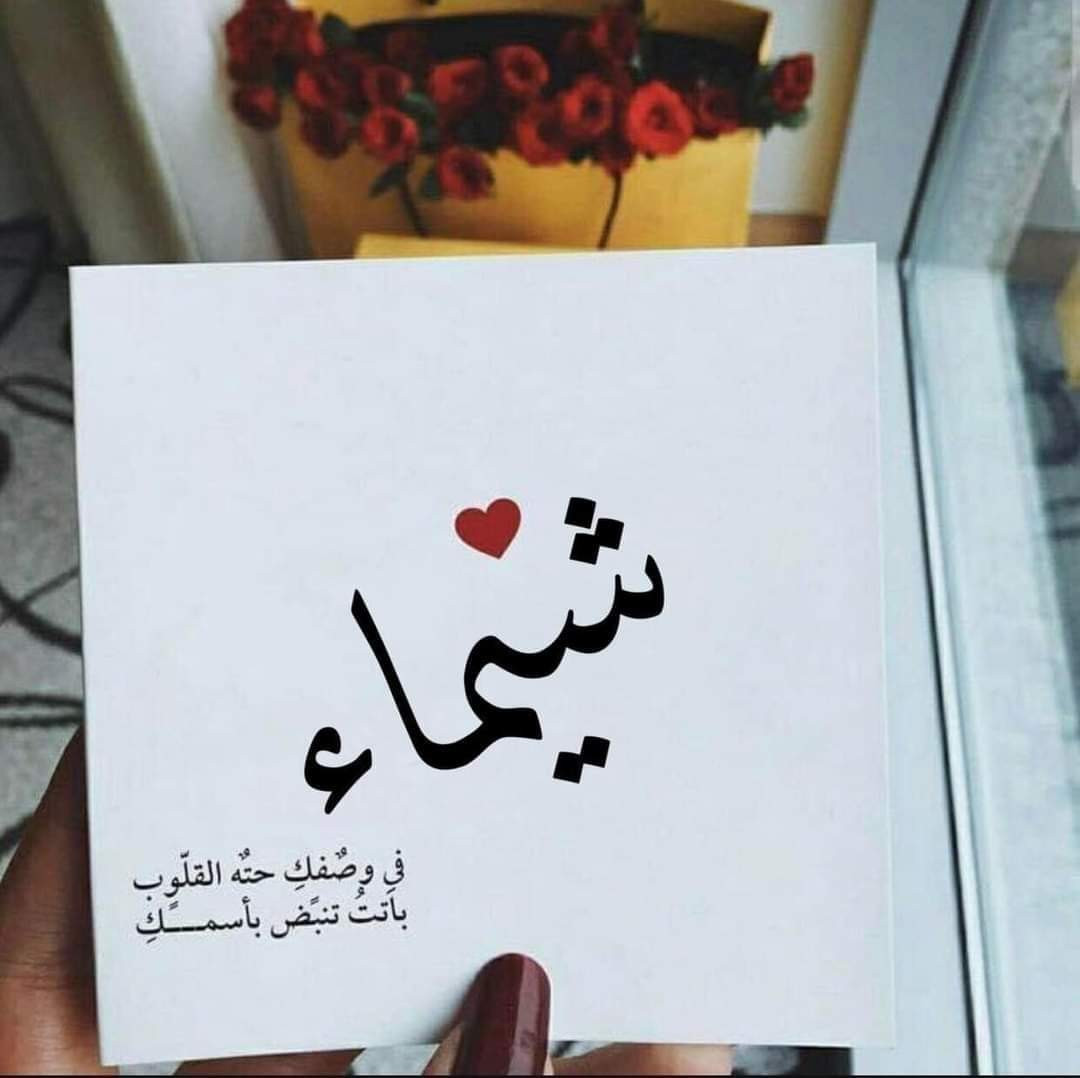 شيماء
في وصٌفكِ حتٌه القلّوب
باَتتُ تنبًض بأسمـــكًِ